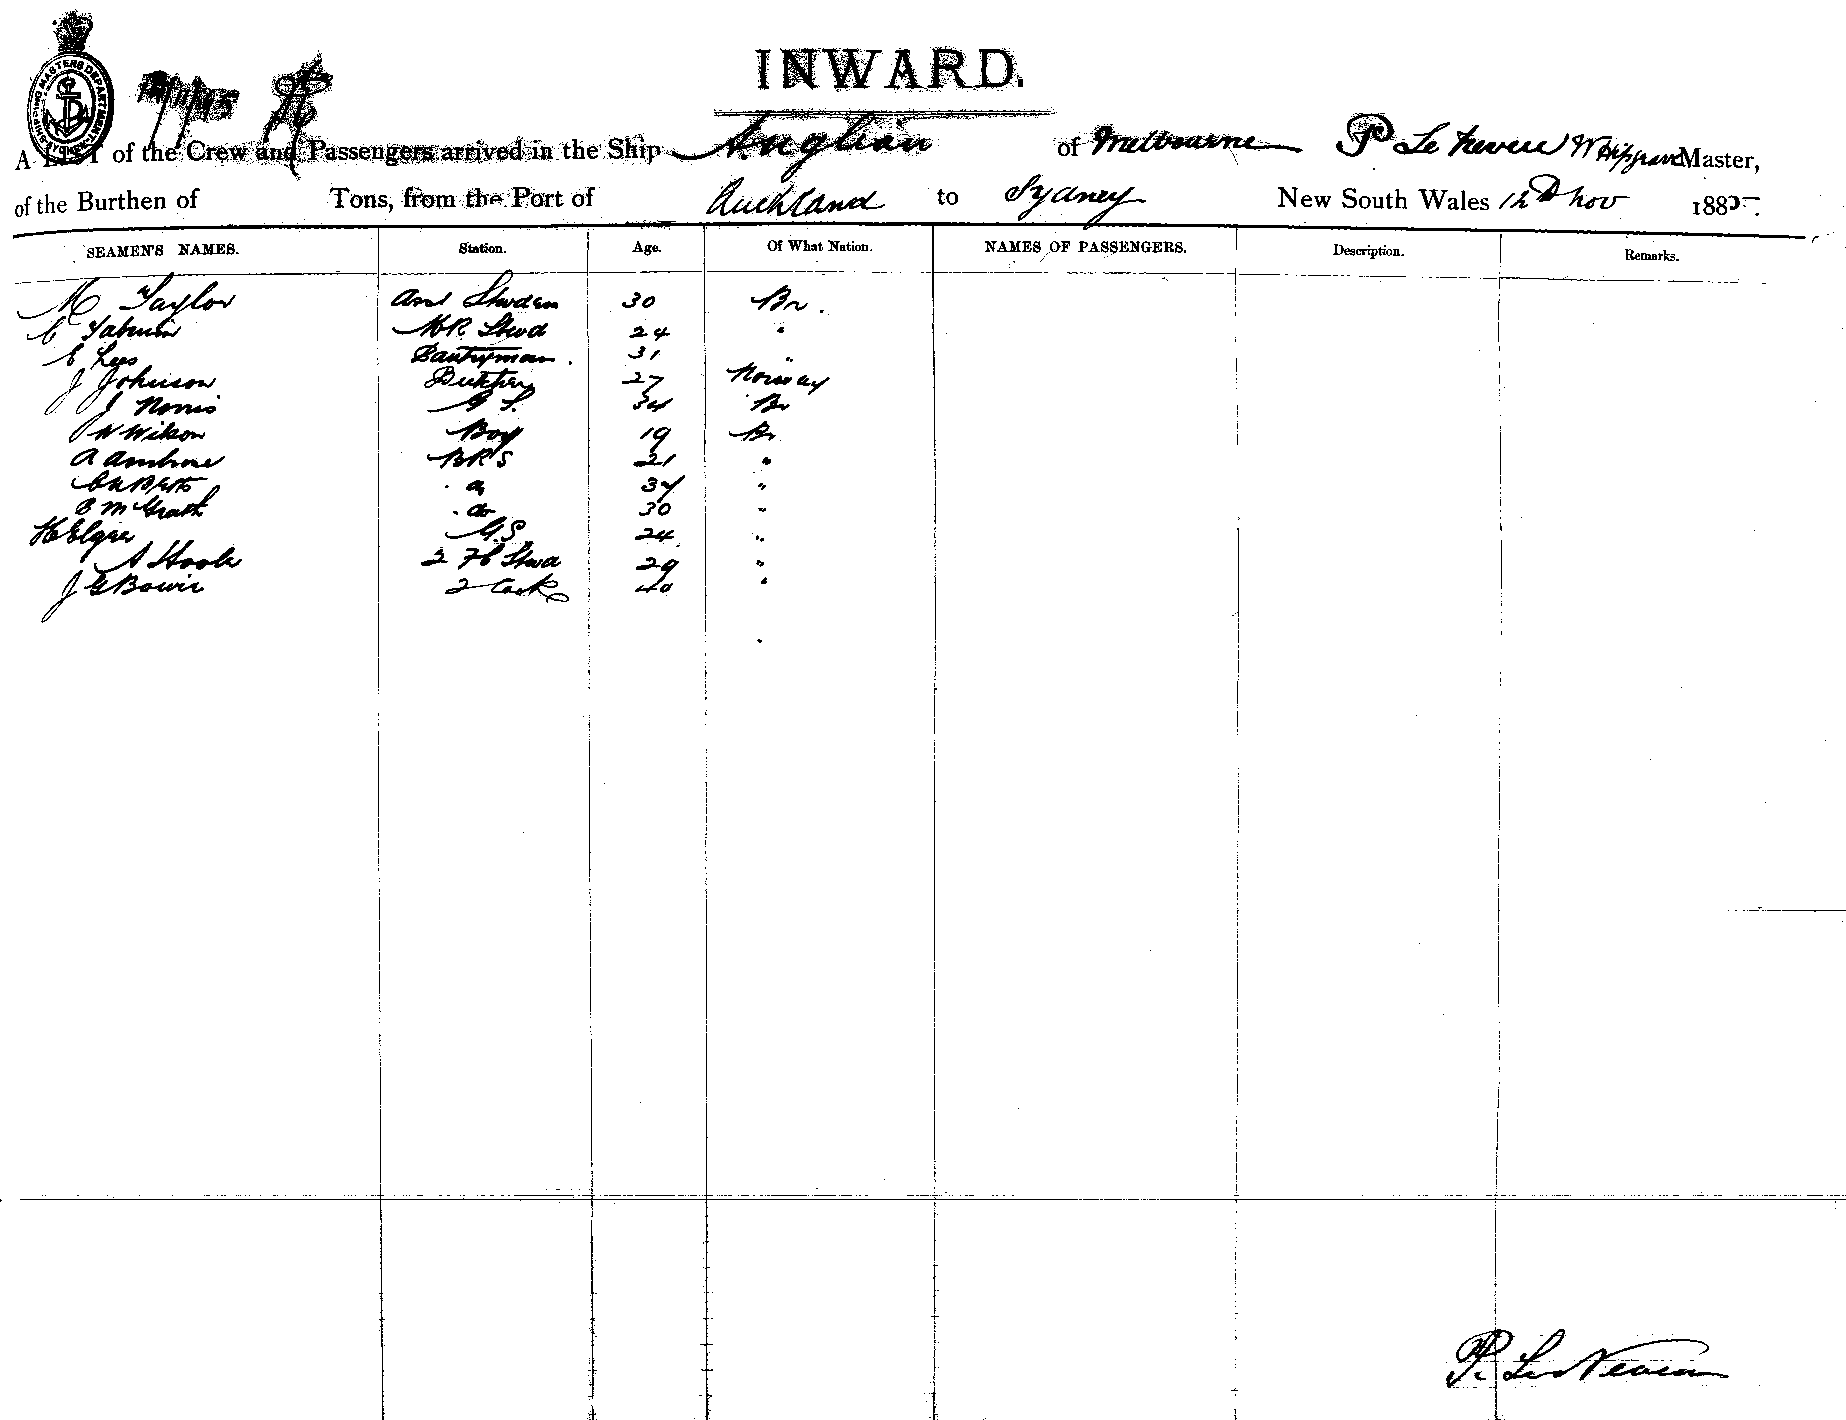 INWARD.
A LIST of the Crew and Passengers arrived in the Ship Anglian of Melbourne P Le Neveu Master,
of the Burthen of Tons, from the Port of Auckland to Sydney New South Wales 12th Nov 1885.
SEAMEN'S NAMES. Station. Age. Of What Nation. NAMES OF PASSENGERS. Description. Remarks.
M Taylor Stewdess 30 Br.
C MR Stwd 24 "
E Lees Pantryman. 31 "
J Johnson Butcher 27 Norway
J Norris G S. 34 Br
W Wilson Boy 19 Br
A Ambrose BRS 21 "
"
B McGrath do 30 "
H Elgar G.S. 24 "
A Hook 2 Stwd 29 "
J G Bowie 2 Cook 40 "
P. Le Neveu